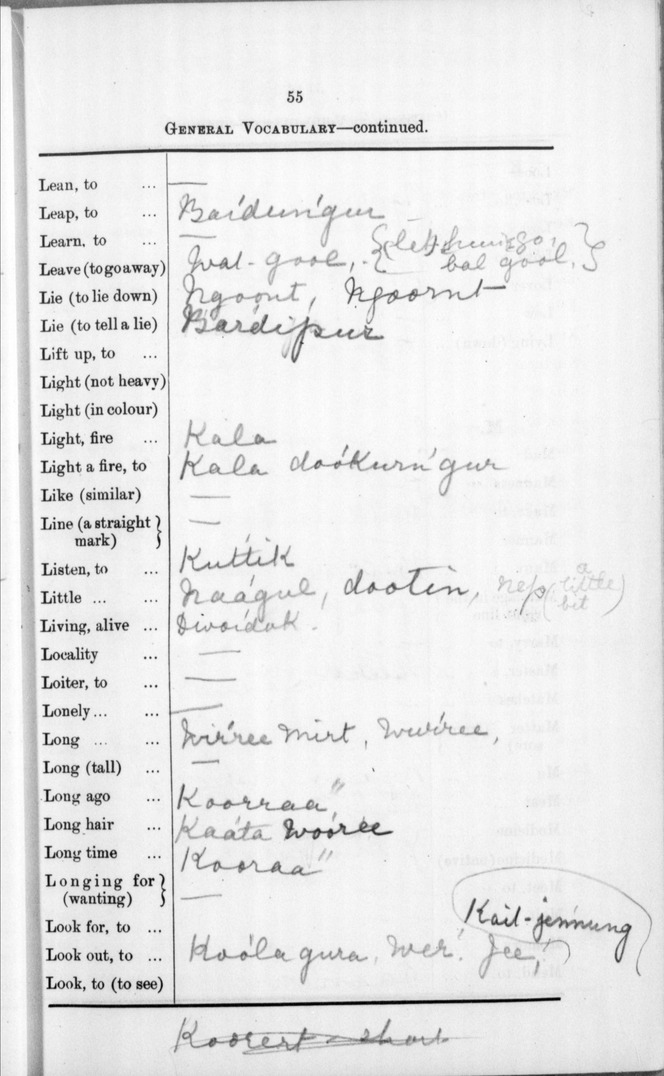 55
GENERAL VOCABULARY—continued.
Lean, to ... —
Leap, to ... Baíduńgur
Learn, to ... —
Leave (to go away) Wal-gool, {(let him go, bal gool.}
Lie (to lie down) Ngoont, Ngoornt
Lie (to tell a lie) Bardípur
Lift up, to ...
Light (not heavy)
Light (in colour)
Light, fire ... Kala
Light a fire, to Kala doókurńgur
Like (similar) —
Line (a straight mark) —
Listen, to ... Kuttik
Little ... ... Naágul, dootin, nep (a little bit)
Living, alive ... Dwoídak.
Locality ... —
Loiter, to ... —
Lonely ... ... —
Long ... ... Wiŕree mirt, Wuŕree,
Long (tall) ... —
Long ago ... Koorraa"
Long hair ... Kaáta Wooree
Long time ... Kooraa"
Longing for (wanting) —
Look for, to ... Kail-jennung
Look out, to ... Koóla gura, Wer! Jee!
Look, to (to see)
Koorert = short